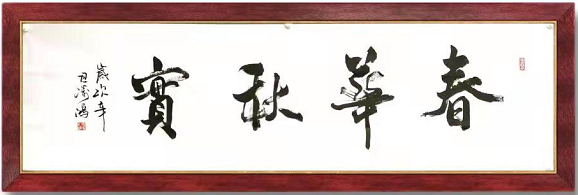 春華秋實
歲次辛
丑濤鴻